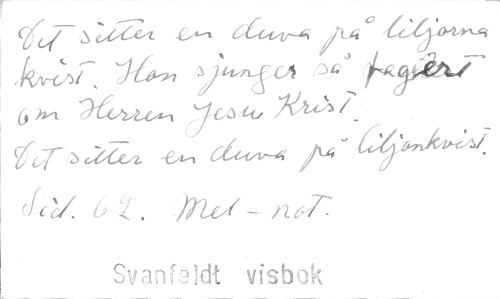 Det sitter en duva på liljorna
kvist. Hon sjunger så fagert
om Herren Jesu Krist.
Det sitter en duva på liljonkvist.
Sid. 62. Mel-not.
Svanfeldt visbok